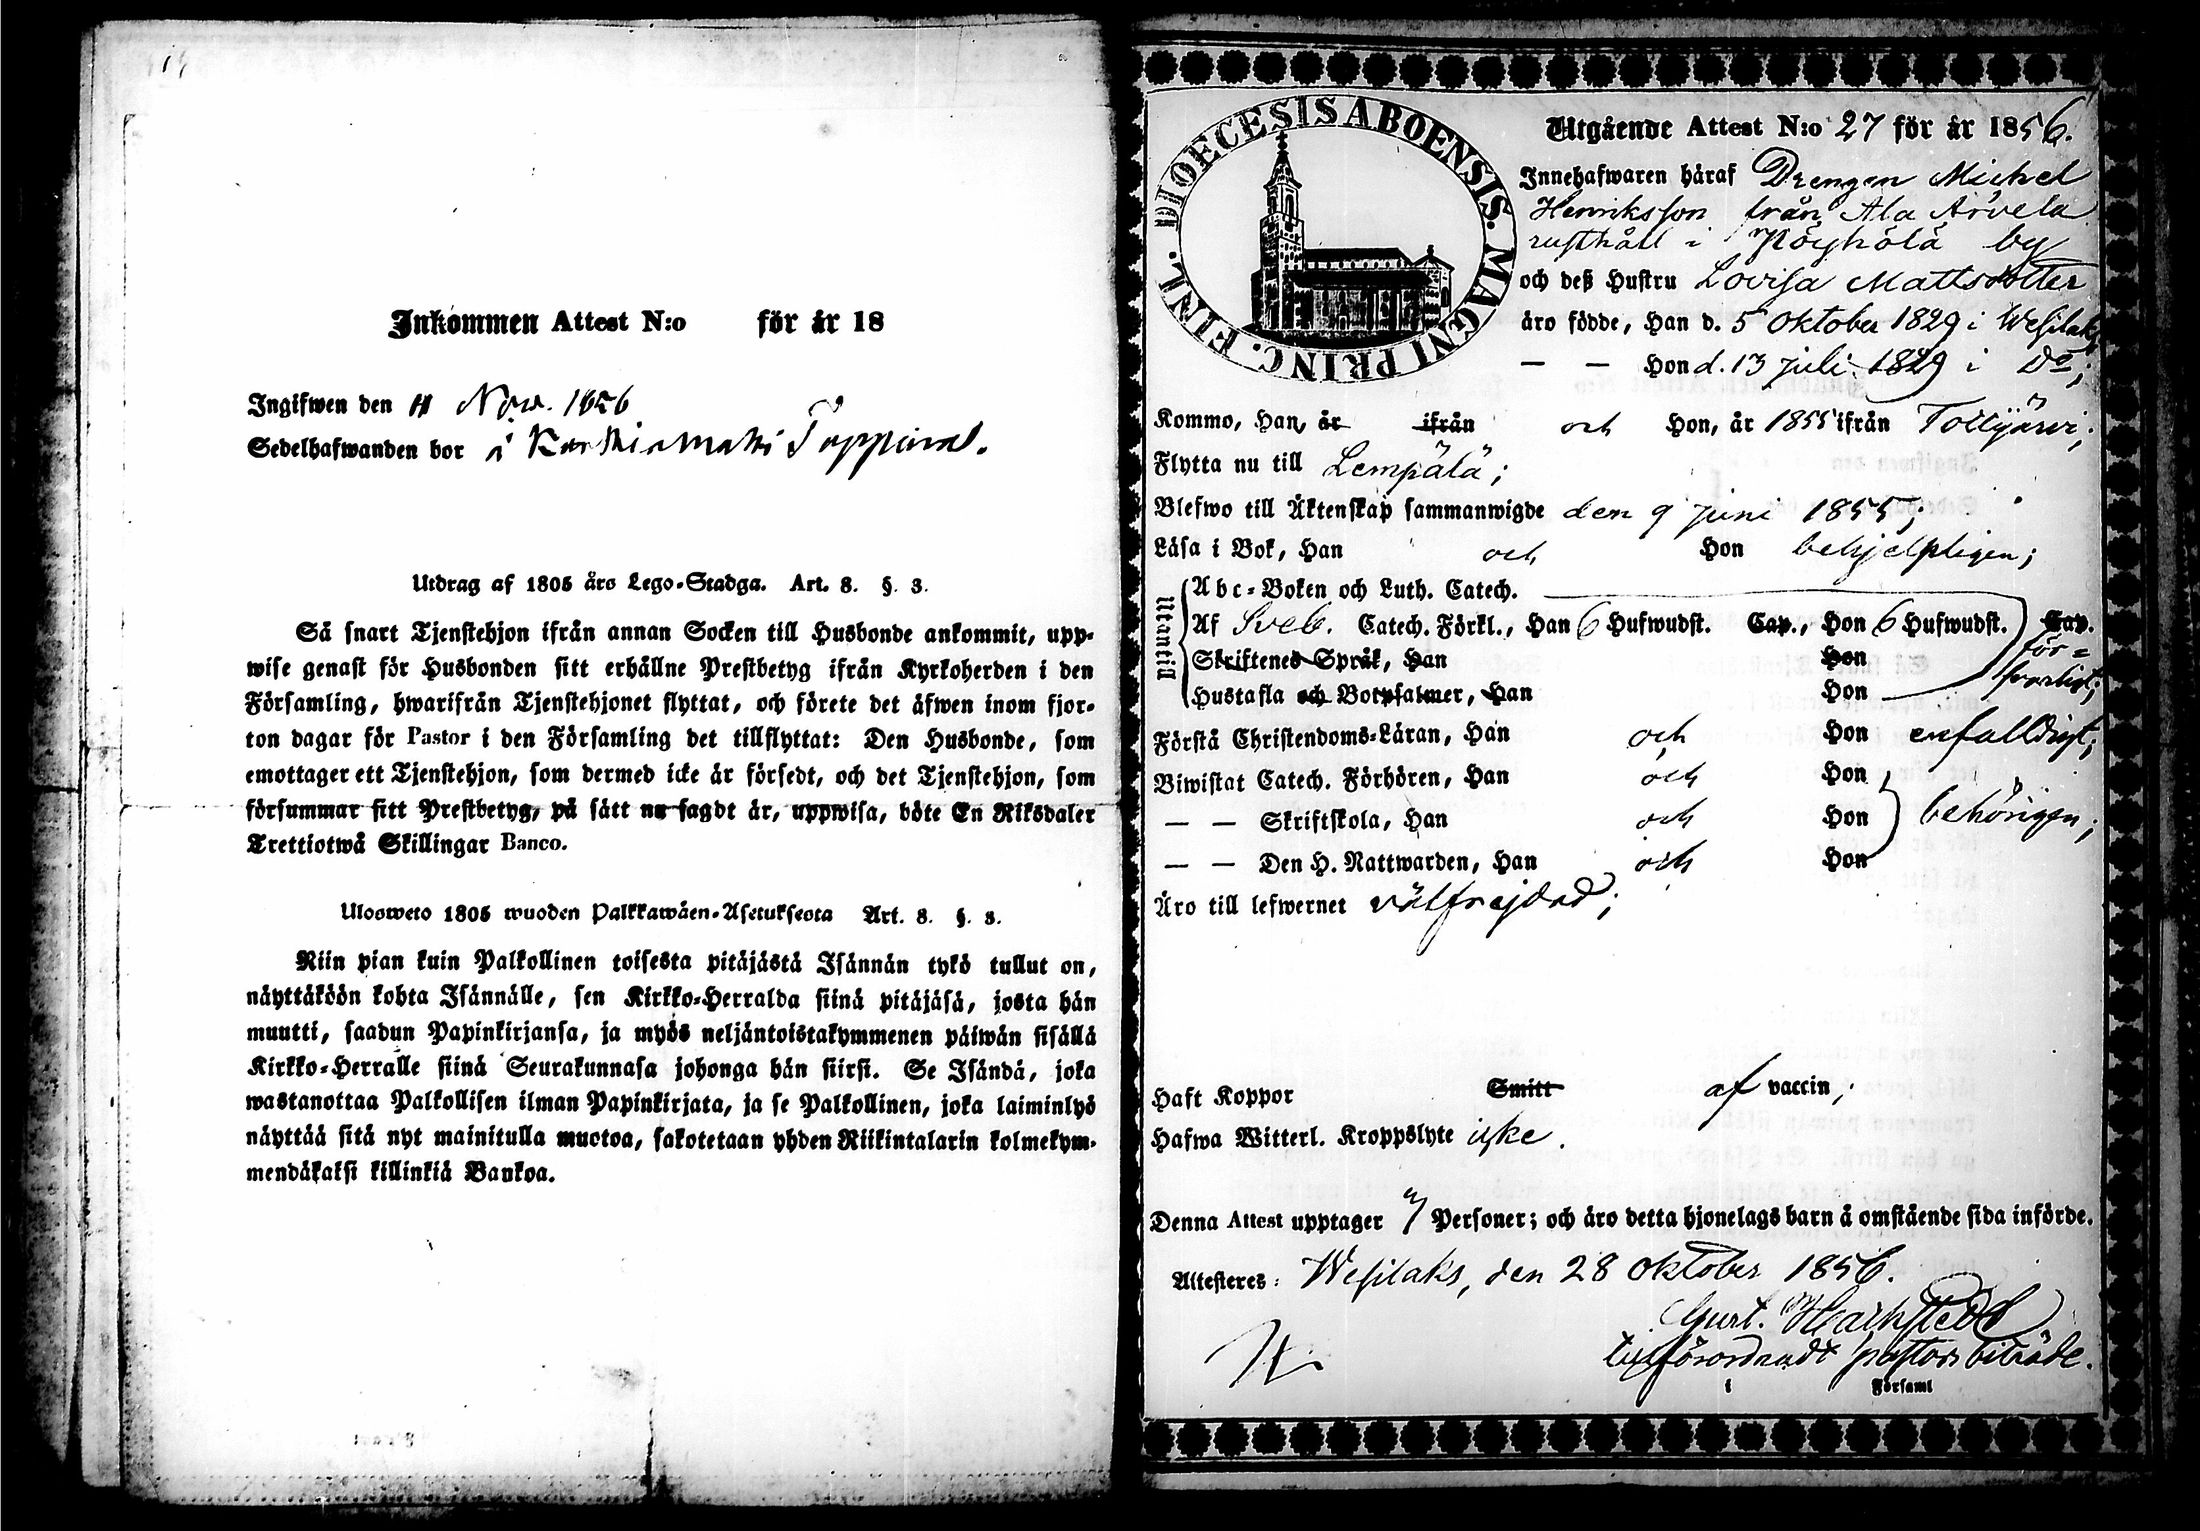 Inkommen Attest N:o för år 18
Ingifwen den 11 Nov. 1856
Sedelhafwanden bor i
Utdrag af 1805 års Lego-Stadga. Art. 8. §. 3.
Så snart Tjenstehjon ifrån annan Socken till Husbonde ankommit, upp-
wise genast för Husbonden sitt erhållne Prestbetyg ifrån Kyrkoherden i den
Församling, hwarifrån Tjenstehjonet flyttat, och förete det äfwen inom fjor-
ton dagar för Pastor i den Församling det tillflyttat: Den Husbonde, som
emottager ett Tjenstehjon, som dermed icke är försedt, och det Tjenstehjon, som
försummar sitt Prestbetyg, på sätt nu sagdt är, uppwisa, böte En Riksdaler
Trettiotwå Skillingar Banco.
Ulosweto 1805 wuoden Palkkawäen-Asetuksesta Art. 8. §. 3.
Niin pian kuin Palkollinen toisesta pitäjästä Isännän tykö tullut on,
näyttäköön kohta Isännälle, sen Kirkko-Herralda siinä pitäjäsä, josta hän
muutti, saadun Papinkirjansa, ja myös neljäntoistakymmenen päiwän sisällä
Kirkko-Herralle siinä Seurakunnasa johonga hän siirsi. Se Isändä, joka
wastanottaa Palkollisen ilman Papinkirjata, ja se Palkollinen, joka laiminlyö
näyttää sitä nyt mainitulla muotoa, sakotetaan yhden Riikintalarin kolmekym-
mendäkaksi killinkiä Bankoa.
DIOECESIS ABOENSIS. MAGNI PRINC. FINL.
Utgående Attest N:o 27 för år 1856.
Innehafwaren häraf Drengen Michel
Henriksson från Ala Arvela
rusthåll i Köyhölä by
och deß Hustru Lovisa Mattsdotter
äro födde, Han d. 5 Oktober 1829 i Wesilaks
— — Hon d. 13 juli 1829 i Do;
Kommo, Han, år ifrån och Hon, år 1855 ifrån Tottijärvi;
Flytta nu till Lempälä;
Blefwo till Äktenskap sammanwigde den 9 juni 1855;
Läsa i Bok, Han och Hon behjelpligen;
Utantill
Abc-Boken och Luth. Catech.
Af Sveb. Catech. Förkl., Han 6 Hufwudst. Cap., Hon 6 Hufwudst. Cap.
Skriftenes Språk, Han Hon för=
Hustafla och Botpsalmer, Han Hon svarligt;
Förstå Christendoms-Läran, Han och Hon enfalldigt;
Biwistat Catech. Förhören, Han och Hon
— — Skriftskola, Han och Hon behörigen;
— — Den H. Nattwarden, Han och Hon
Äro till lefwernet välfrejdad;
Haft Koppor Smitt af vaccin;
Hafwa Witterl. Kroppslyte icke.
Denna Attest upptager Personer; och äro detta hjonelags barn å omstående sida införde.
Attesteres: Wesilaks, den 28 Oktober 1856.
tillförordnadt pastors biträde.
i Församl